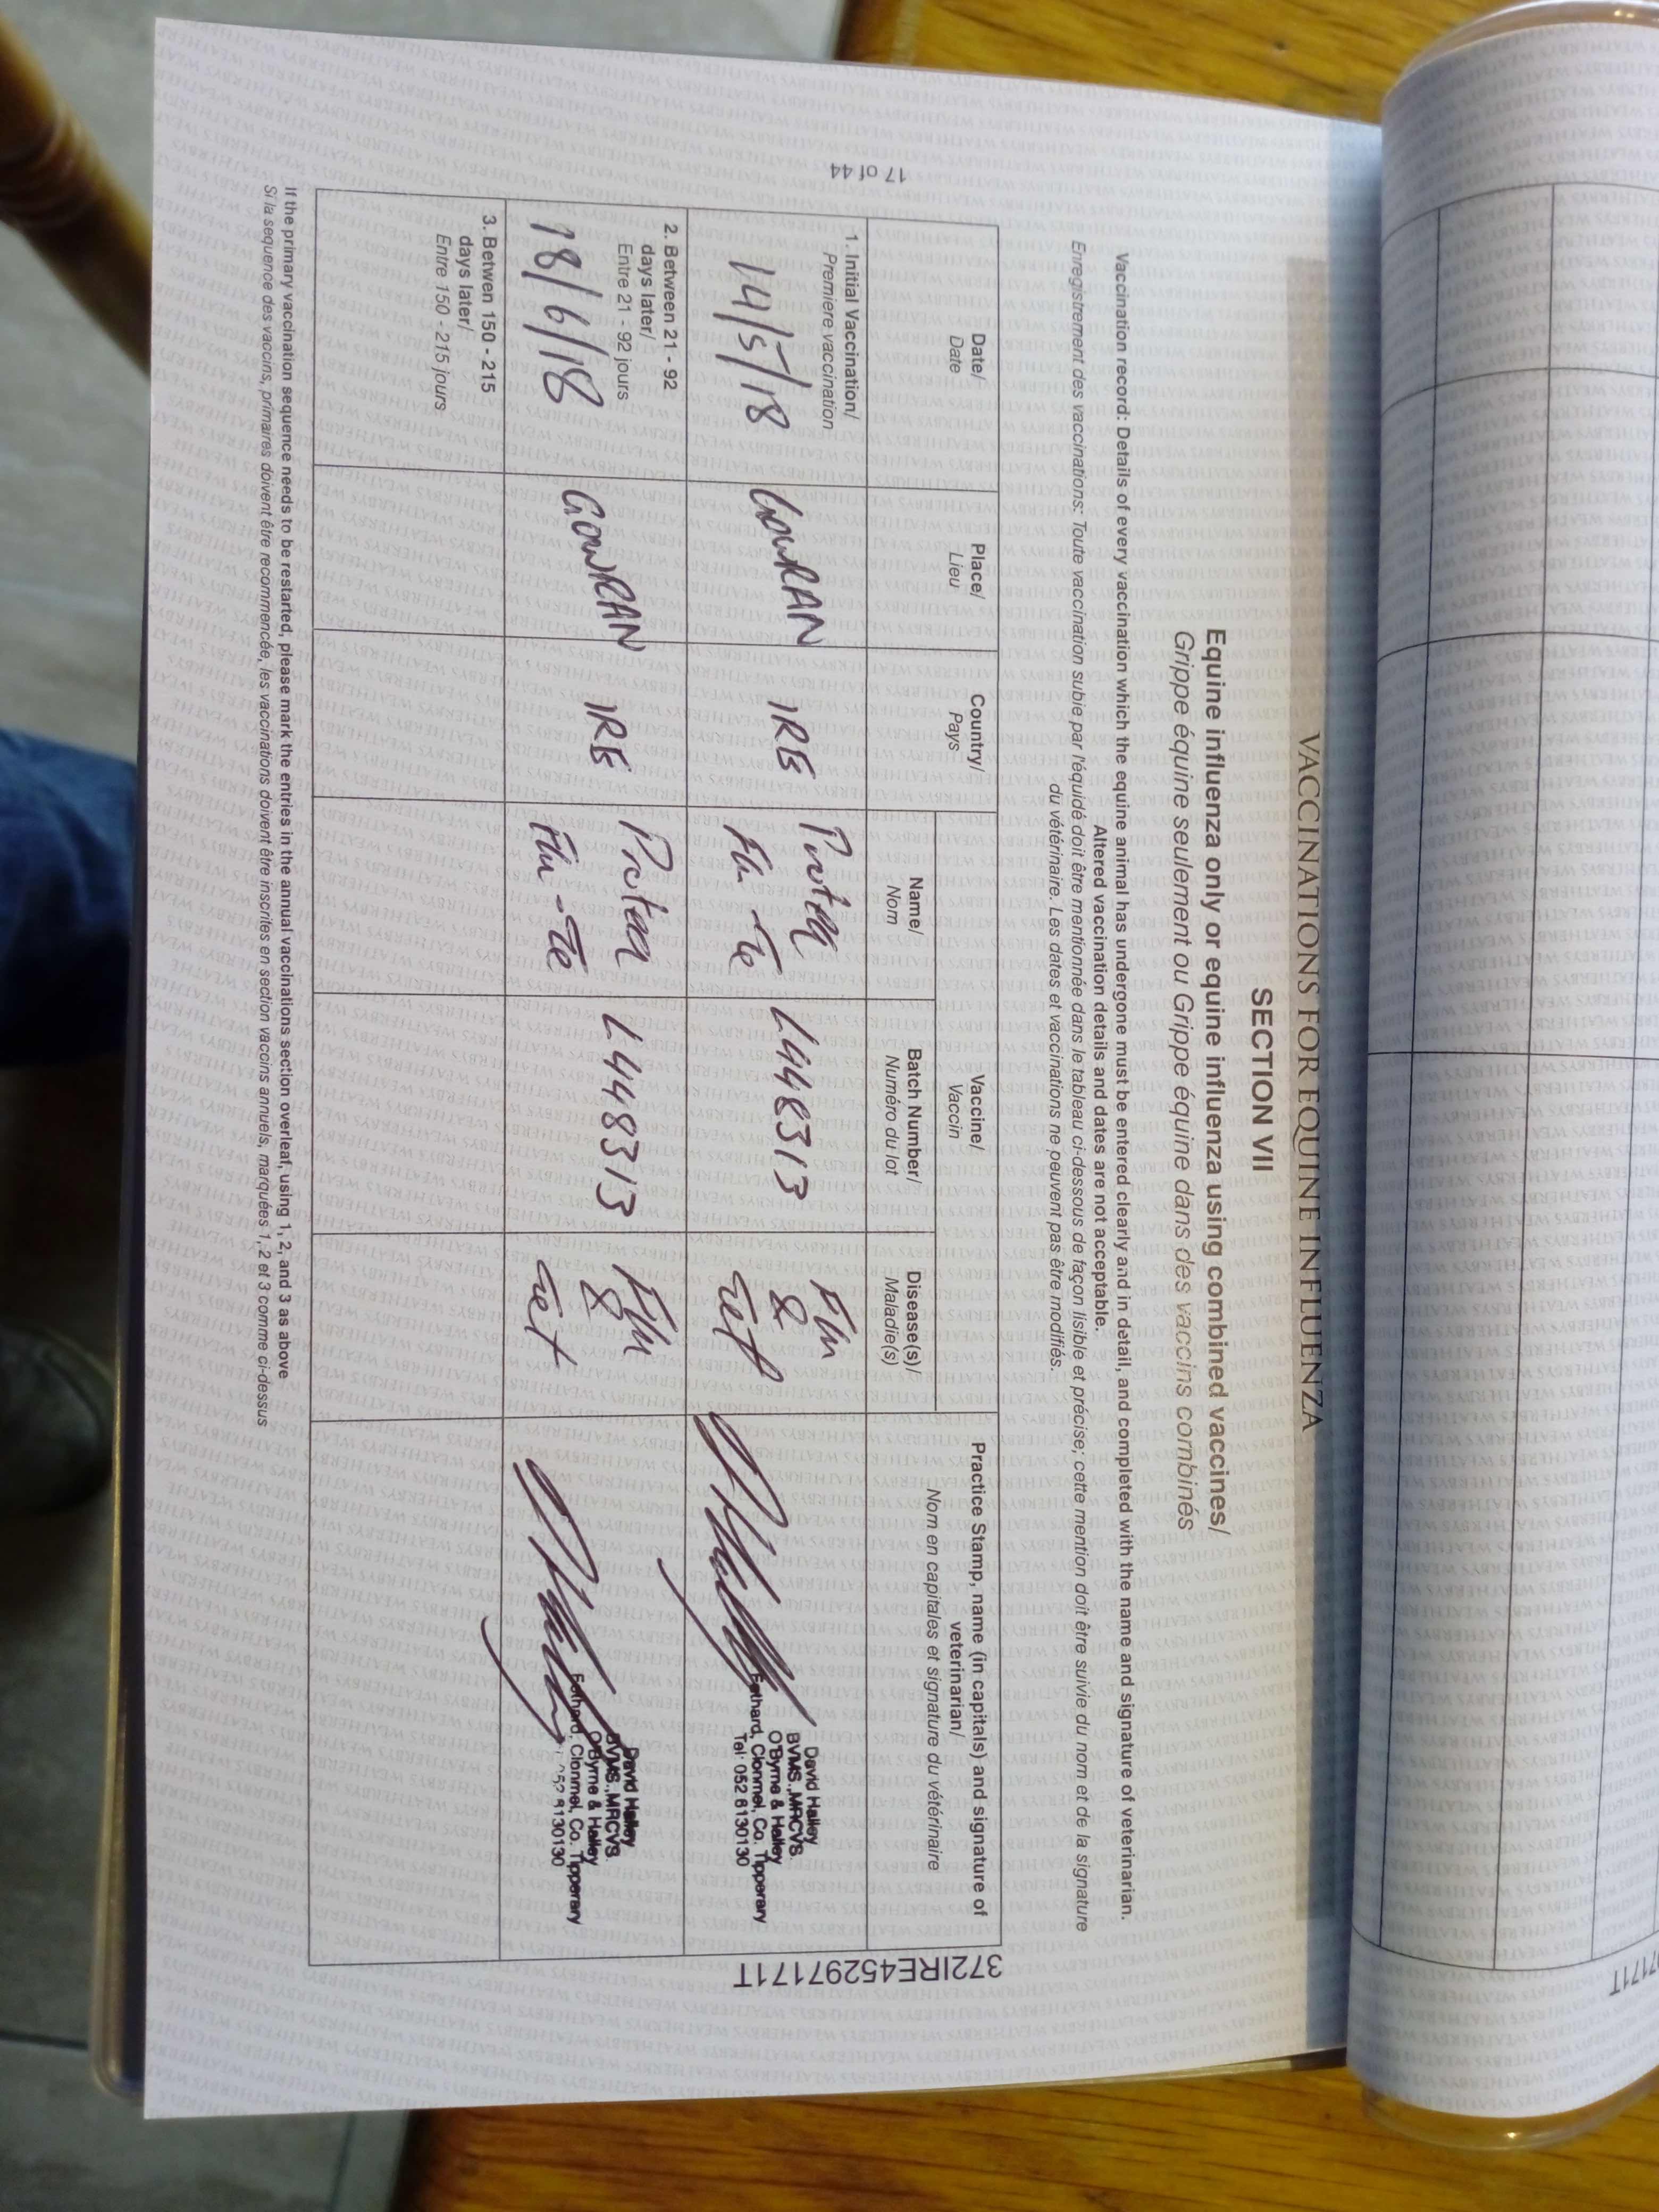 VACCINATIONS FOR EQUINE INFLUENZA
SECTION VII
Equine influenza only or equine influenza using combined vaccines/
Grippe équine seulement ou Grippe équine dans des vaccins combinés
Vaccination record: Details of every vaccination which the equine animal has undergone must be entered clearly and in detail, and completed with the name and signature of veterinarian.
Altered vaccination details and dates are not acceptable.
Enregistrement des vaccinations: Toute vaccination subie par l'équidé doit être mentionnée dans le tableau ci-dessous de façon lisible et précise; cette mention doit être suivie du nom et de la signature
du vétérinaire. Les dates et vaccinations ne peuvent pas être modifiés.
Date/
Date
Place/
Lieu
Country/
Pays
Vaccine/
Vaccin
Name/
Nom
Batch Number/
Numéro du lot
Disease(s)/
Maladie(s)
Practice Stamp, name (in capitals) and signature of
veterinarian/
Nom en capitales et signature du vétérinaire
1. Initial Vaccination/
Premiere vaccination
14/5/18
GOWRAN
IRE
Proteq
Flu -Te
L448313
Flu
&
Tet
David Halley
BVMS.,MRCVS.
O'Byrne & Halley
Fethard, Clonmel, Co. Tipperary
Tel: 052 6130130
2. Between 21 - 92
days later/
Entre 21 - 92 jours
18/6/18
GOWRAN
IRE
Proteq
Flu -Te
L448313
Flu
&
Tet
David Halley
BVMS.,MRCVS.
O'Byrne & Halley
Fethard, Clonmel, Co. Tipperary
052 6130130
3. Betwen 150 - 215
days later/
Entre 150 - 215 jours
If the primary vaccination sequence needs to be restarted, please mark the entries in the annual vaccinations section overleaf, using 1, 2, and 3 as above
Si la sequence des vaccins, primaires doivent être recommencée, les vaccinations doivent être inscrites en section vaccins annuels, marquées 1, 2 et 3 comme ci-dessus
17 of 44
372IRE45297171T